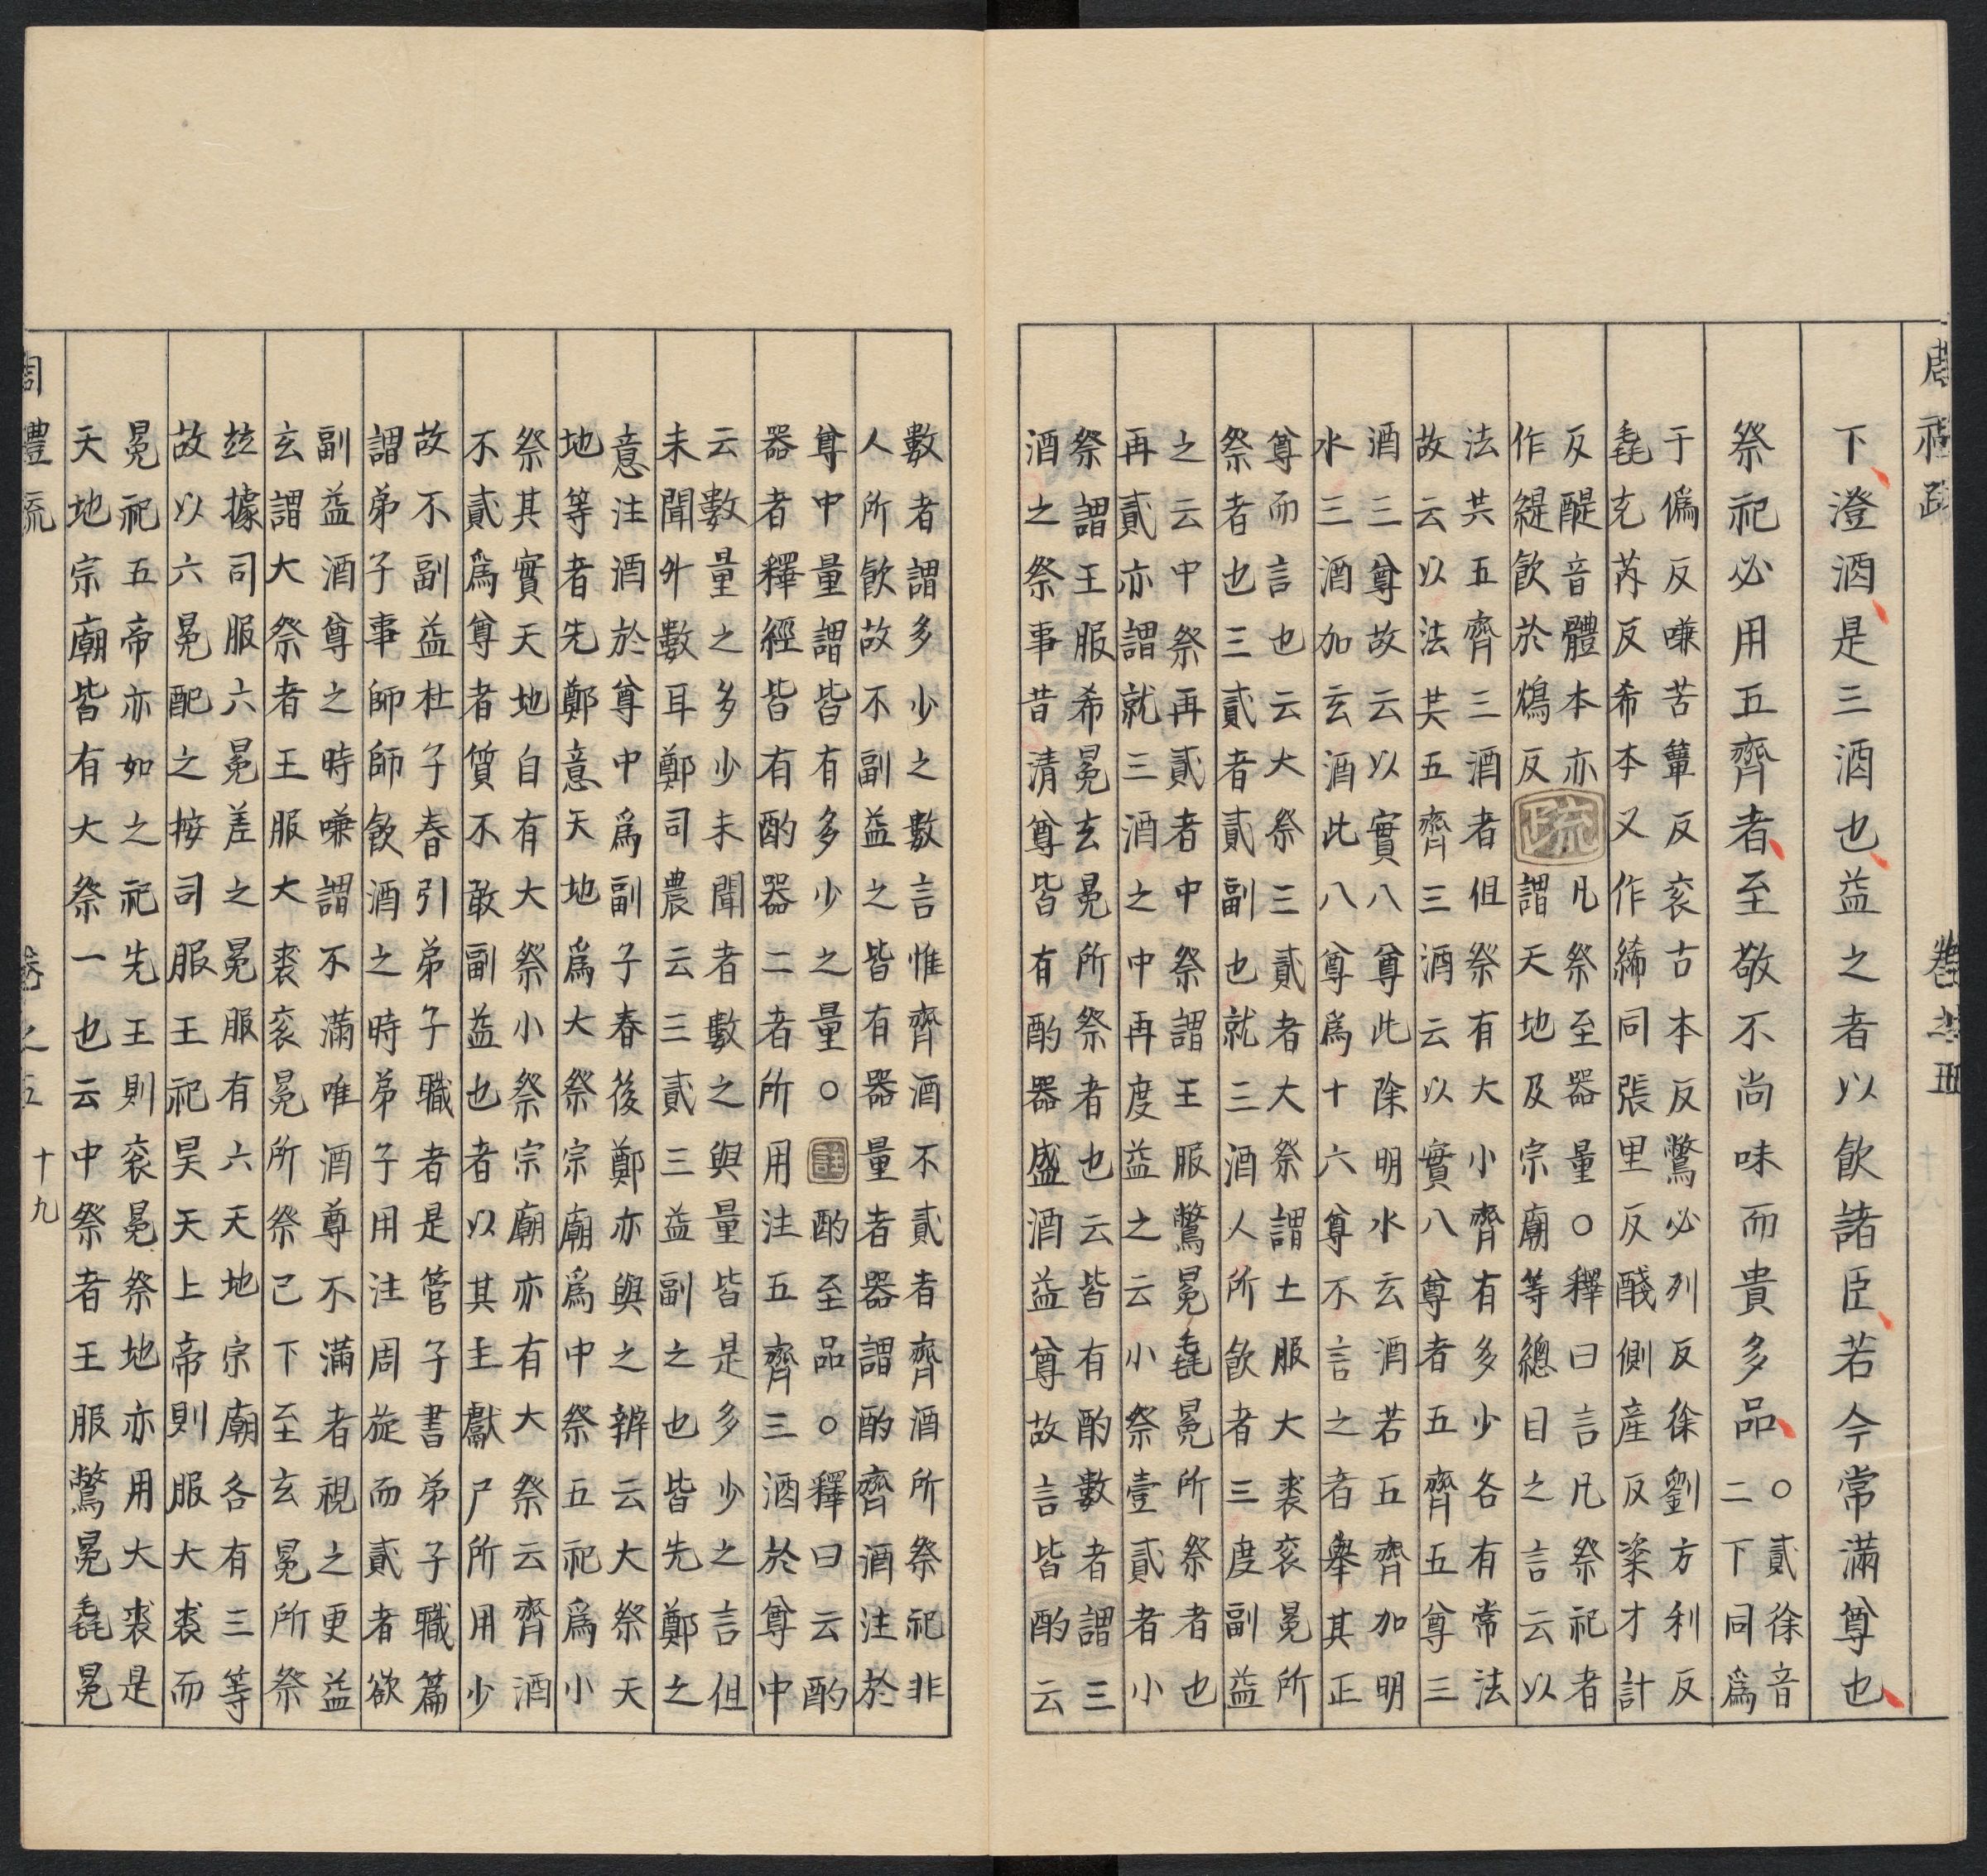 周禮疏 卷之五
下澄酒是三酒也益之者以飲諸臣若今常滿尊也
祭祀必用五齊者至敬不尚味而貴多品○貳徐音
二下同爲
于僞反嗛苦簟反衮古本反鷩必列反徐劉方利反
毳充芮反希本又作絺同張里反醆側產反粢才計
反醍音體本亦
作緹飲於鴆反
疏
凡祭至器量○釋曰言凡祭祀者
謂天地及宗廟等總目之言云以
法共五齊三酒者但祭有大小齊有多少各有常法
故云以法共五齊三酒云以實八尊者五齊五尊三
酒三尊故云以實八尊此除明水玄酒若五齊加明
水三酒加玄酒此八尊爲十六尊不言之者舉其正
尊而言也云大祭三貳者大祭謂土服大裘衮冕所
祭者也三貳者貳副也就三酒人所飲者三度副益
之云中祭再貳者中祭謂王服鷩冕毳冕所祭者也
再貳亦謂就三酒之中再度益之云小祭壹貳者小
祭謂王服希冕玄冕所祭者也云皆有酌數者謂三
酒之祭事昔清尊皆有酌器盛酒益尊故言皆酌云
數者謂多少之數言惟齊酒不貳者齊酒所祭祀非
人所飲故不副益之皆有器量者器謂酌齊酒注於
尊中量謂皆有多少之量○
註
酌至品○釋曰云酌
器者釋經皆有酌器二者所用注五齊三酒於尊中
云數量之多少未聞者數之與量皆是多少之言但
未聞升數耳鄭司農云三貳三益副之也皆先鄭之
意注酒於尊中爲副子春後鄭亦與之辨云大祭天
地等者先鄭意天地爲大祭宗廟爲中祭五祀爲小
祭其實天地自有大祭小祭宗廟亦有大祭云齊酒
不貳爲尊者質不敢副益也者以其主獻尸所用少
故不副益杜子春引弟子職者是管子書弟子職篇
謂弟子事師師飲酒之時弟子用注周旋而貳者欲
副益酒尊之時嗛謂不滿唯酒尊不滿者視之更益
玄謂大祭者王服大裘衮冕所祭已下至玄冕所祭
竝據司服六冕差之冕服有六天地宗廟各有三等
故以六冕配之按司服王祀昊天上帝則服大裘而
冕祀五帝亦如之祀先王則衮冕祭地亦用大裘是
天地宗廟皆有大祭一也云中祭者王服鷩冕毳冕
周禮疏 卷之五 十九